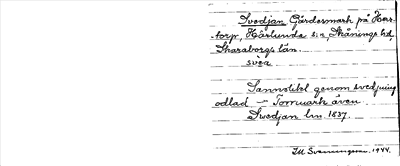 Svedjan Gärdesmark på Hers-
torp, Härlunda s:n Skånings hd,
Skaraborgs län.
svéa
Sannolikt genom svedjning
odlad — Tornmark även
Swedjan lm 1837.
I.M. Svenningson. 1944.